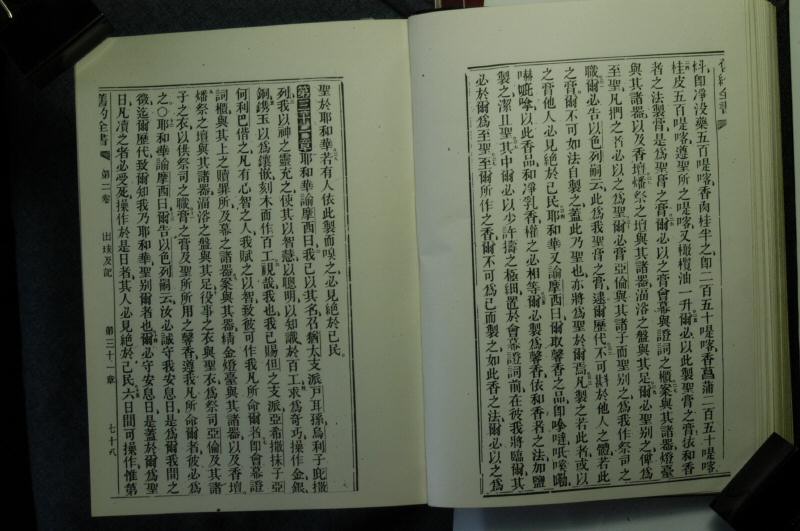 舊約全書
枓卽淨沒藥五百咺喀香肉桂半之卽二百五十咺喀香菖蒲二百五十咺喀
桂皮五百咺喀遵聖所之咺喀又橄欖油一升爾必以此製聖膏之膏依和香
者之法製膏是爲聖膏之膏爾必以之膏會幕與證詞之櫃案與其諸器燈臺
與其諸器以及香壇燔祭之壇與其諸器湢洛之盤與其足爾必聖別之俾爲
至聖凡捫之者必以之爲聖爾必膏亞倫與其諸子而聖別之爲我作祭司之
職爾必告以色列嗣云此爲我聖膏之膏逮爾歷代不可斟於他人之體若此
之膏爾不可如法自製之蓋此乃聖也亦將爲聖於爾焉凡製之若此者或以
之膏他人必見絕於己民耶和華又諭摩西曰爾取馨香之品卽
以此香品和凈乳香權之必相等爾必製爲馨香依和香者之法加鹽
製之潔且聖其中爾必以少許擣之極細置於會幕證詞前在彼我將臨爾其
必於爾爲至聖至爾所作之香爾不可爲己而製之如此香之法爾必以之爲
聖於耶和華若有人依此製而嗅之必見絕於己民
第三十一章耶和華諭摩西曰我已以其名召猶太支派戸耳孫烏利子庇撒
列我以神之靈充之使其以智慧以聰明以知識於百工求爲奇巧操作金銀
銅鐫玉以爲鑲嵌刻木而作百工視哉我也我已賜但之支派亞希撒抹子亞
何利巴偕之凡有心智之人我賦之以智致彼可作我凡所命爾者卽會幕證
詞櫃與其上之贖罪所及幕之諸器案與其諸器精金燈臺與其諸器以及香壇
燔祭之壇與其諸器湢洛之盤與其足役事之衣與聖衣爲祭司亞倫及其諸
子之衣以供祭司之職膏之膏及聖所所用之馨香遵我凡所命爾者彼必爲
之〇耶和華諭摩西曰爾告以色列嗣云汝必誠守我安息日是爲爾我間之
徵迄爾歷代致爾知我乃耶和華聖別爾者也爾必守安息日是蓋於爾爲聖
日凡瀆之者必受死操作於是日者其人必見絕於己民六日間可操作惟第
舊約全書 第二卷 出埃及記 第三十一章 七十八